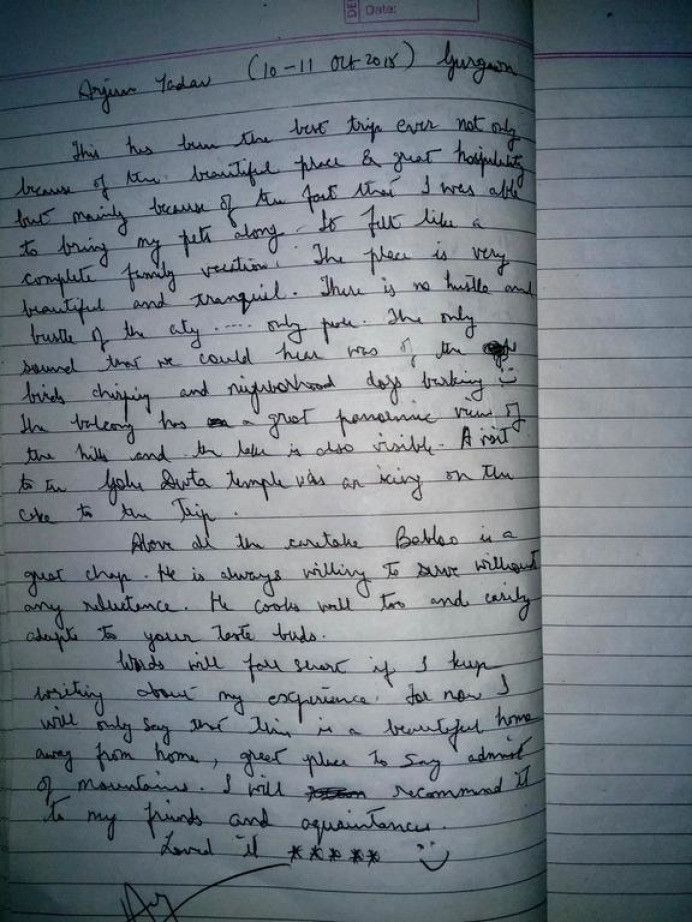 Date:
Arjun Yadav (10-11 Oct 2018) Gurgaon
This has been the best trip ever not only
because of the beautiful place & great hospitality
but mainly because of the fact that I was able
to bring my pets along. It felt like a
complete family vacation. The place is very
beautiful and tranquil. There is no hustle and
bustle of the city ..... only pure. The only
sound that we could hear was of the
birds chirping and neighborhood dogs barking :)
The balcony has a great panoramic view of
the hills and the lake is also visible. A visit
to the Golu Devta temple was an icing on the
cake to the Trip.
Above all the caretake Babloo is a
great chap. He is always willing to serve without
any reluctance. He cooks well too and easily
adapts to your taste buds.
Words will fall short if I keep
writing about my experience. For now I
will only say that this is a beautiful home
away from home, great place to say admist
of mountains. I will recommend it
to my friends and aquaintances.
Loved it ***** :)